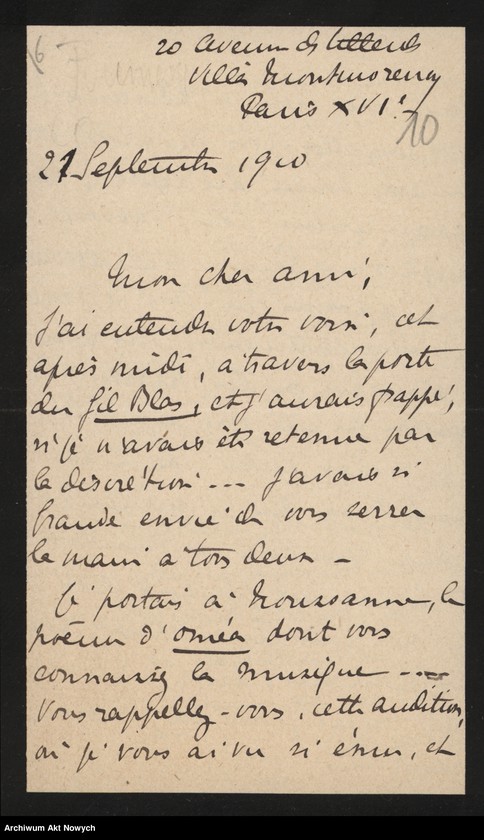 6
20 avenue des Tilleuls
Villa Montmorency
Paris XVIe
10
21 Septembre 1910
Mon cher ami,
J'ai entendu votre voix, cet
après midi, à travers la porte
du Gil Blas, et j'aurais frappé,
si je n'avais été retenue par
la discrétion --- J'avais si
grande envie de vous serrer
la main à tous deux -
Je portais à Mourzanne, le
poëme d'oméa dont vous
connaissez la musique ----
Vous rappellez-vous, cette audition,
où je vous ai vu si ému, et
Archiwum Akt Nowych